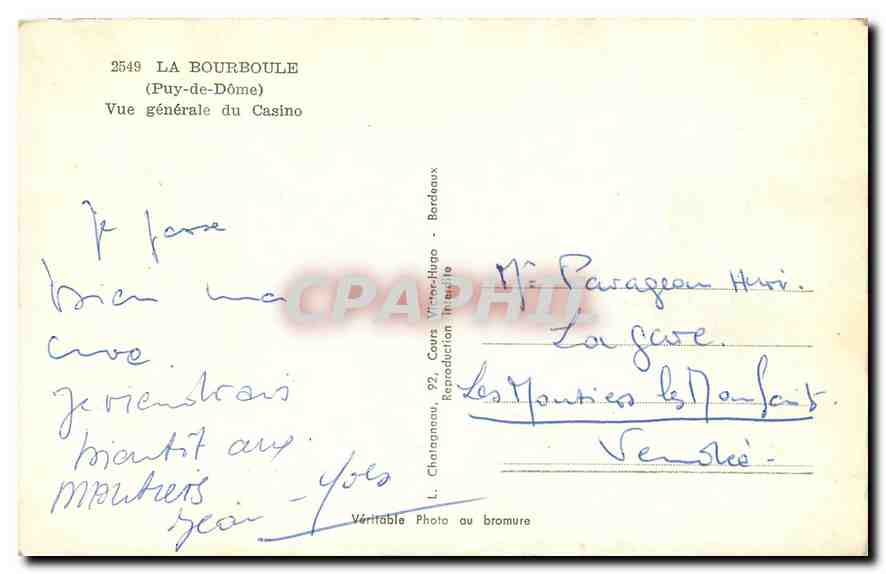 2549 LA BOURBOULE
(Puy-de-Dôme)
Vue générale du Casino
Je passe
bien ma
cure
Je viendrais
bientôt aux
moutiers
Jean-Yves
L. Chatagneau, 92, Cours Victor-Hugo - Bordeaux
Reproduction interdite
CPAPHIL
Mr Parageau Henri.
La gare.
Les Moutiers les Maufaits
Vendée -
Véritable Photo au bromure